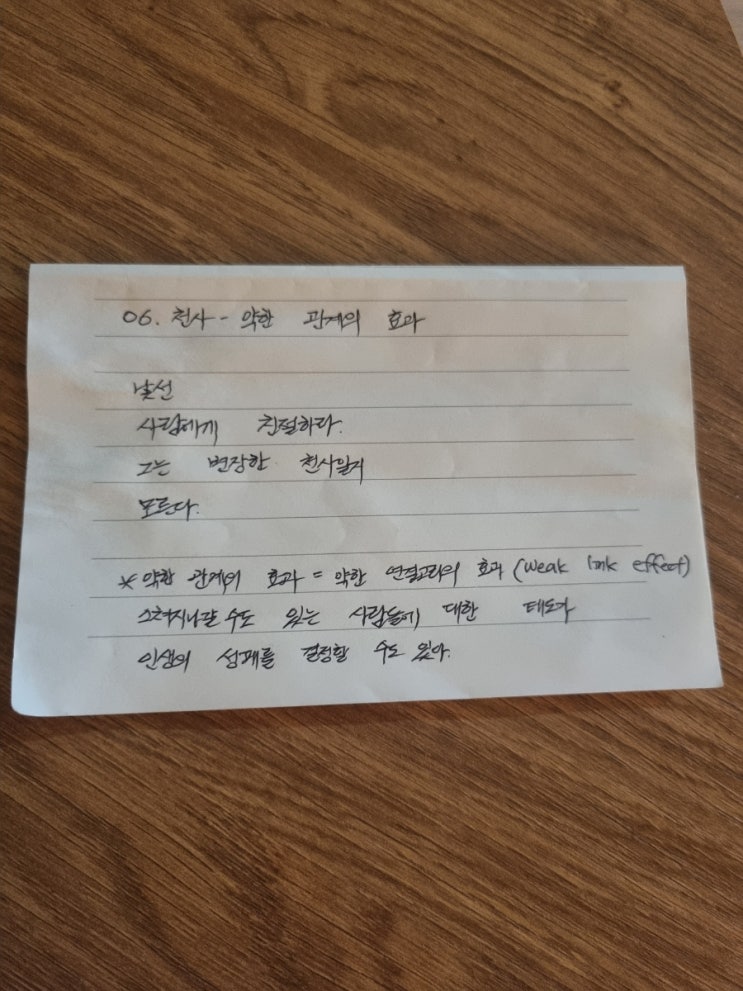 06. 천사 - 약한 관계의 효과
낯선
사람에게 친절하라.
그는 변장한 천사일지
모른다.
* 약한 관계의 효과 = 약한 연결고리의 효과 (weak link effect)
스쳐지나갈 수도 있는 사람들에 대한 태도가
인생의 성패를 결정할 수도 있어.